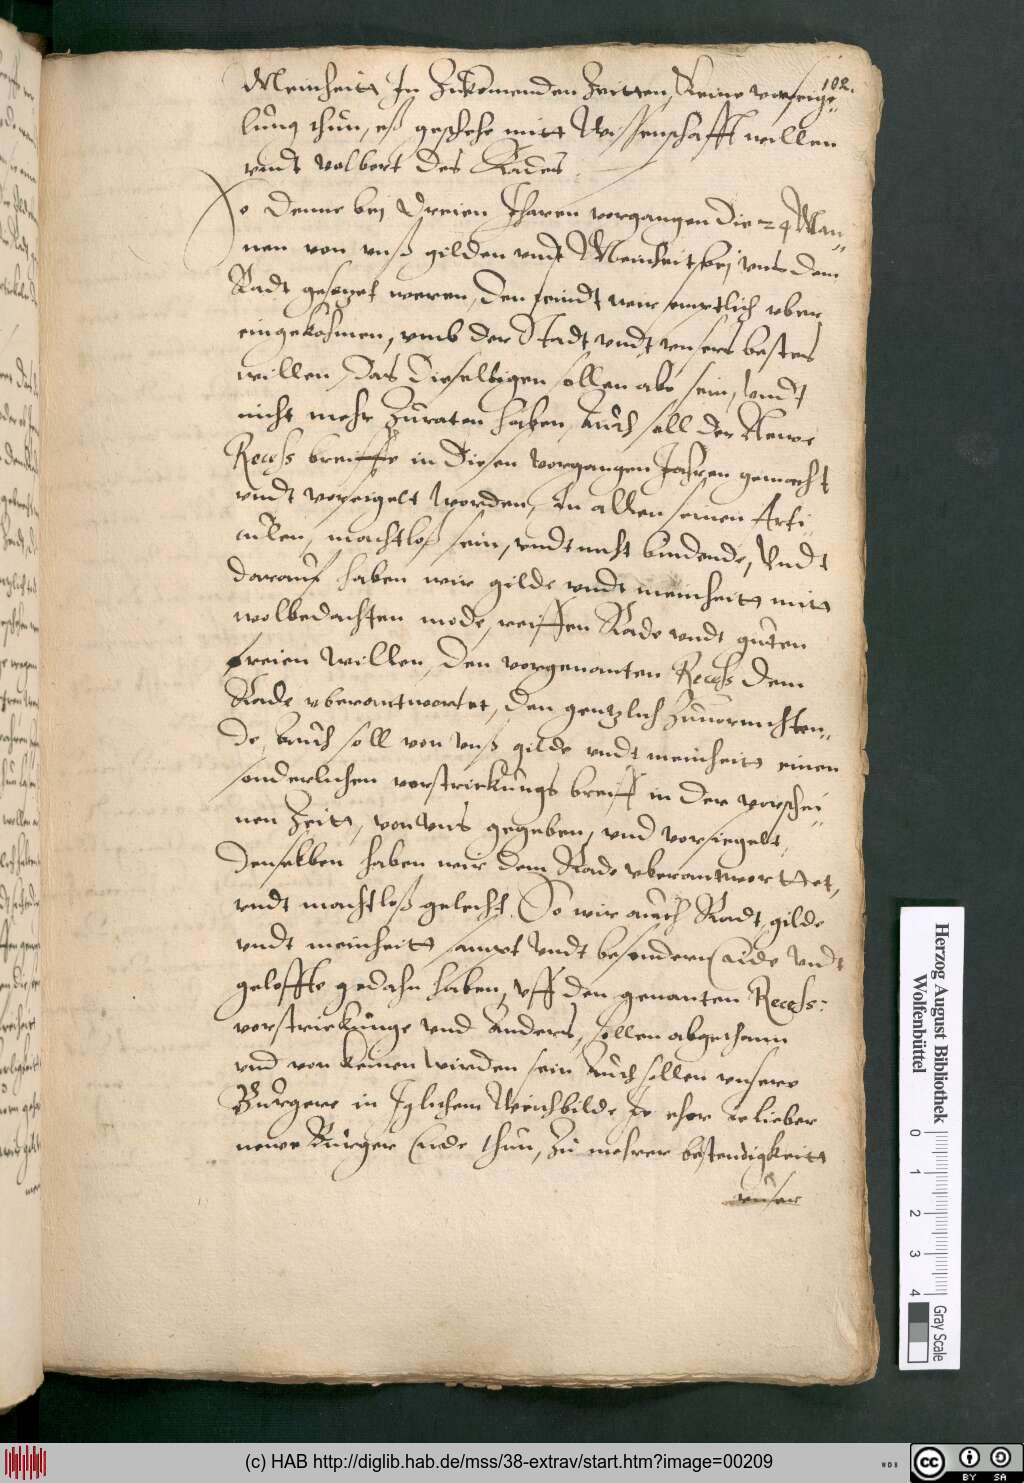 102.
Meinheitt In Zukomenden Zeitten, Keine vorseige„
lung thun, eß geschehe mitt Wissenschafft willen
vndt volbort des Rades
So denne bej Dreien Jharen vorgangen die 24 Man„
nen von vnß gilden vndt Meinheit bej vns dem
Radt gesezet weren, Den seindt wir semptlich vber
eingekohmen, vmb der Stadt vndt vnsers bestes
willen, Das Dieselbigen sollen abe sein, Vndt
nicht mehr Zuraten haben, Auch soll der Newe
Recess breiffe in Diesen vorgangen Jahren gemacht
vndt vorseigelt worden, In allen seinen Arti„
culen, machtloß sein, vndt nicht bindende, Vndt
darauf haben wir gilde vndt meinheitt mitt
wolbedachten mode, reiffen Rade vndt guten
freien willen, Den vorgenanten Recess dem
Rade vberantwortet, den gentzlich Zuuornichten„
de, Auch soll von vnß gilde vndt meinheitt einen
sonderlichen vorstrickungs breiff in der vorschei„
nen Zeitt, von vns gegeben, vnd vorsiegelt,
Denselben haben wir dem Rade vberantworttet,
vndt machtloß gelecht. So wir auch Radt gilde
vndt meinheitt sampt Vndt besondern Eide Vndt
geloffte gedahn haben, vff den genanten Recess:
vorstrickunge vnd Anders, sollen abgethann
vnd von keinen wirden sein Auch sollen vnsere
Burgere in Jglichem Weichbilde Je eher Je lieber
newe Burger Eide thun, Zu mehrer bestendigkeitt
vnser
Herzog August Bibliothek
Wolfenbüttel
0 1 2 3 4
Gray Scale
(c) HAB http://diglib.hab.de/mss/38-extrav/start.htm?image=00209
WDB
cc BY SA